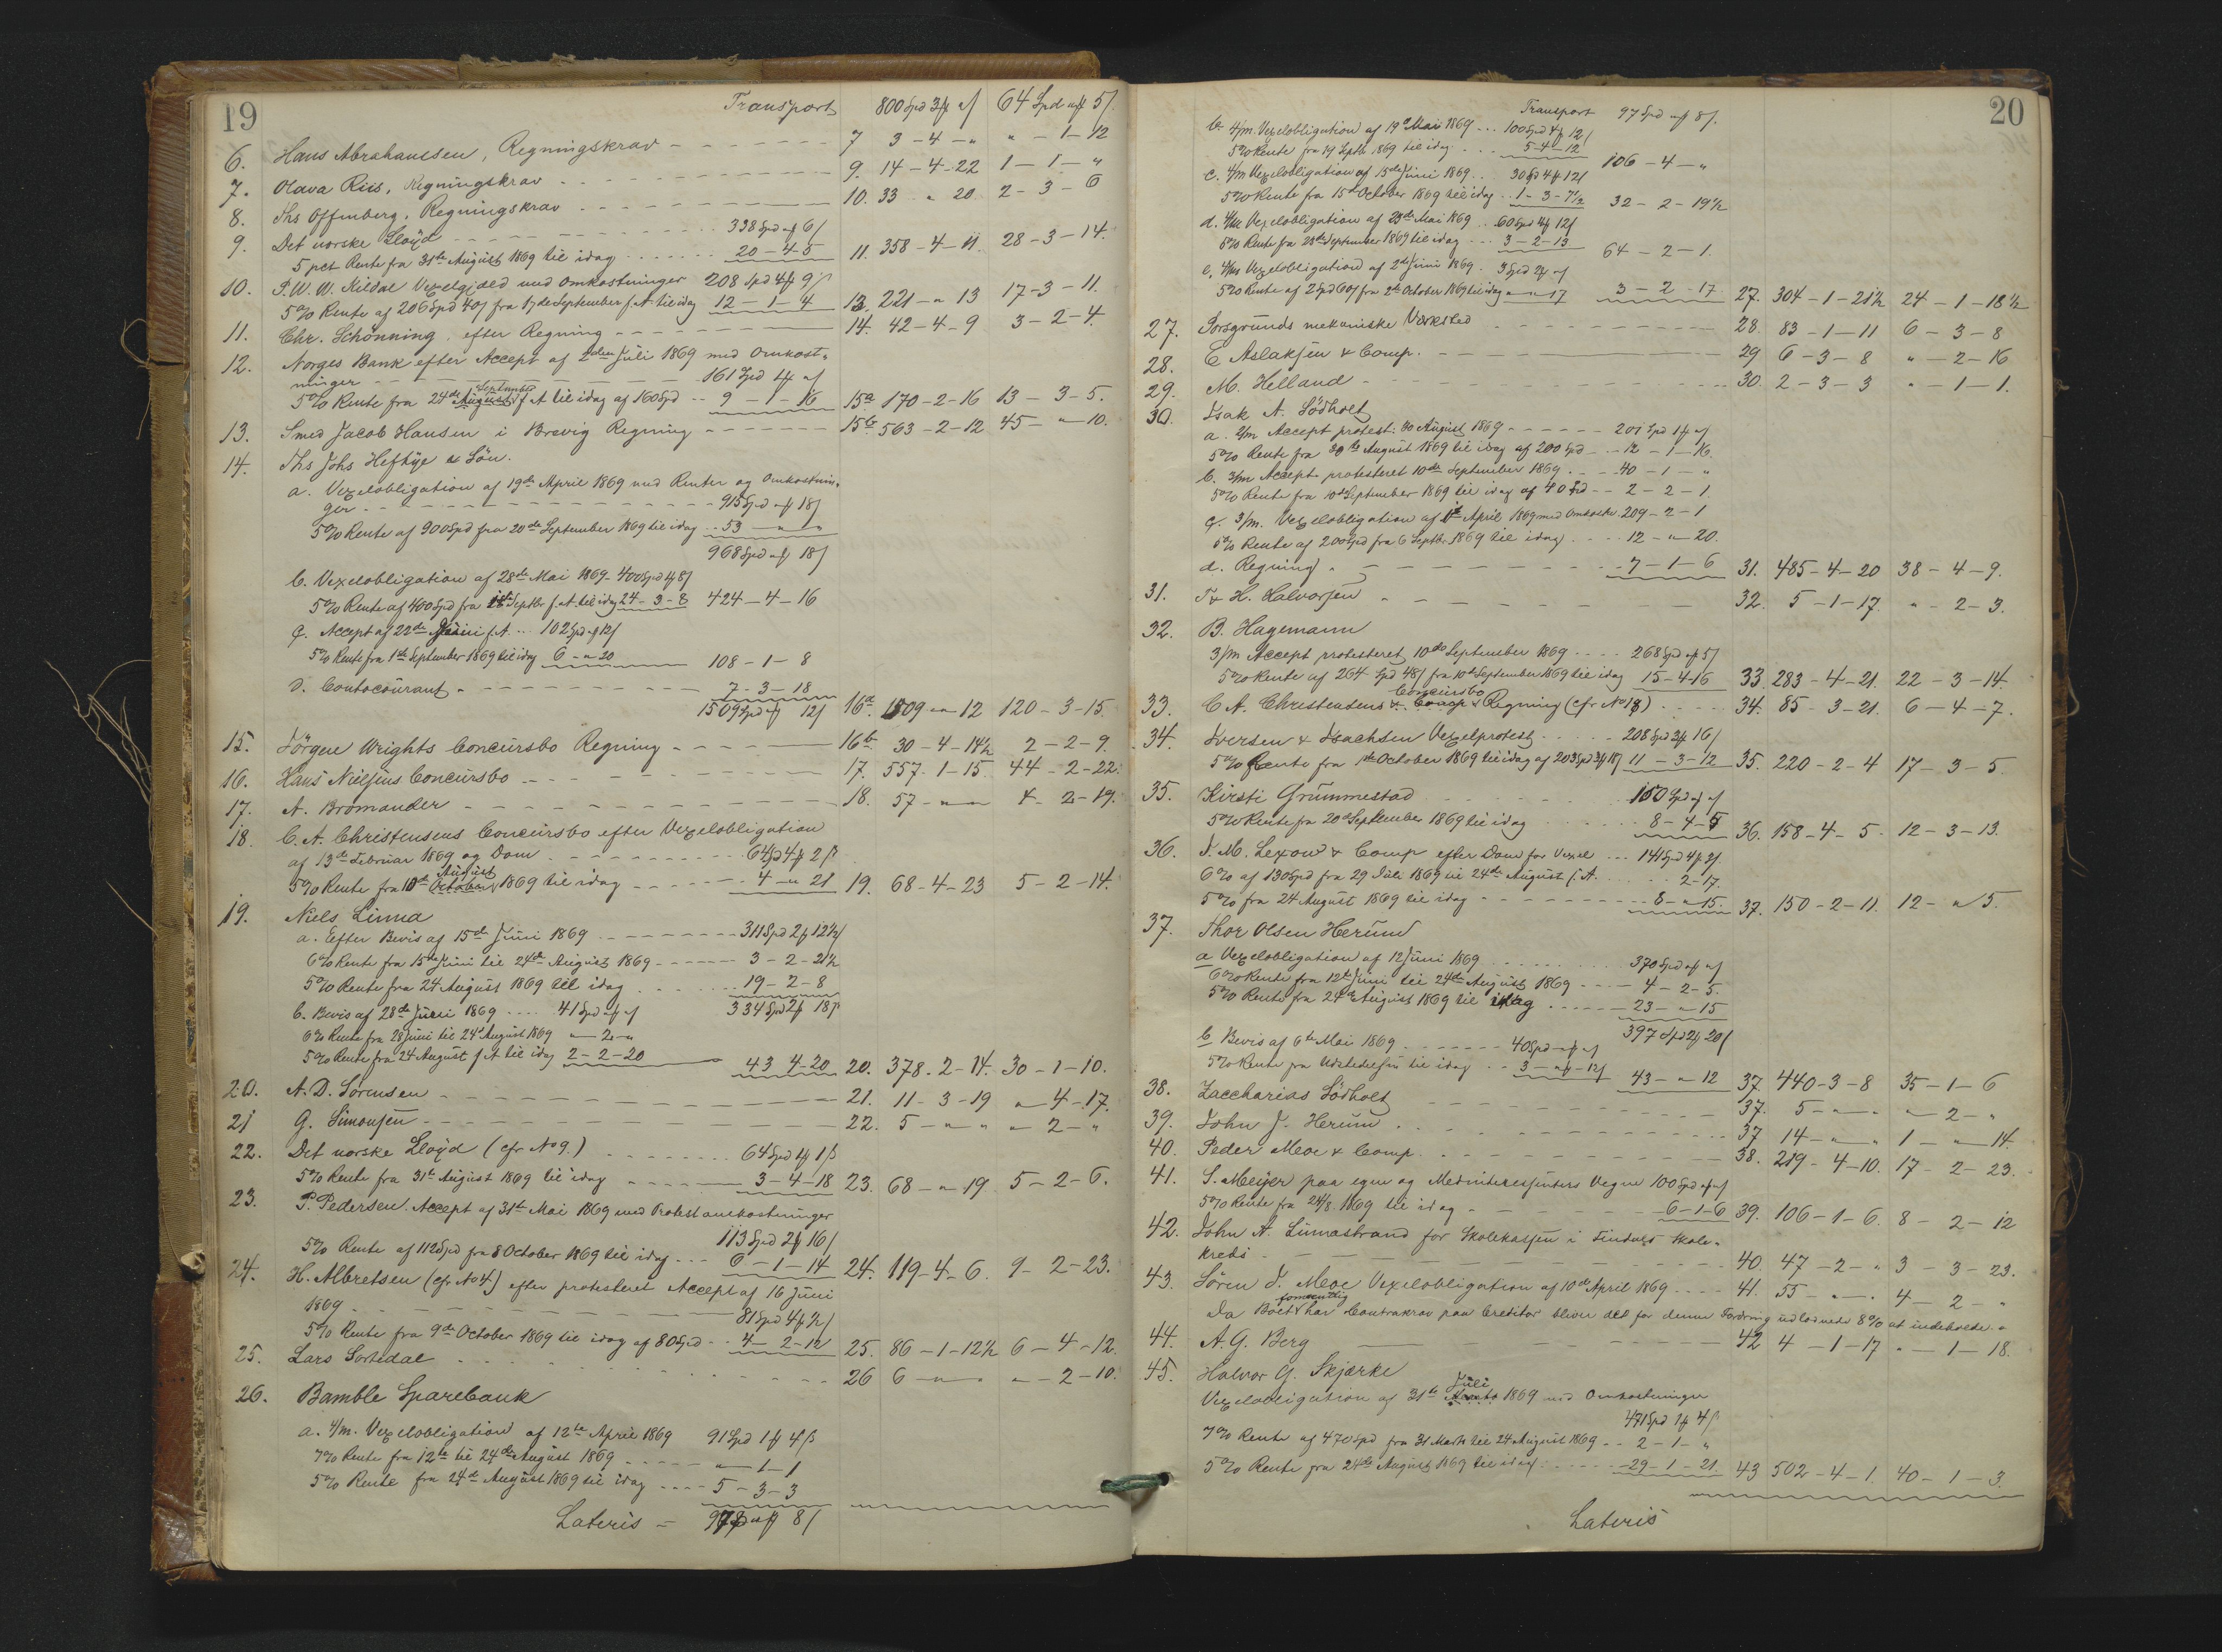 19
Transport 800 Spd 3 ʄ " ſ 64 Spd " ʄ 5 ſ.
6. Hans Abrahamsen, Regningskrav - - - 7 3 - 4 - " " - 1 - 12
7. Olava Riis, Regningskrav - - - 9. 14 - 4 - 22 1 - 1 - "
8. Ths Offenberg, Regningskrav - - - 10. 33 " 20 2 - 3 - 6
9. Det norske Lloyd - - - 338 Spd " ʄ 6 ſ
5 pct Rente fra 31te August 1869 til idag - - - 20 - 4 - 5 11. 358 - 4 - 11. 28 - 3 - 14.
10. P. W. W. Kildal Vexelgjæld med Omkostninger 208 Spd 4 ʄ 9 ſ
5% Rente af 206 Spd 40 ſ fra 17de September f. A. til idag 12 - 1 - 4 13. 221 - " 13 17 - 3 - 11.
11. Chr. Schönning, efter Regning - - - 14. 42 - 4 - 9 3 - 2 - 4.
12. Norges Bank efter Accept af 2den Juli 1869 med Omkost-
ninger - - - 161 Spd 1 ʄ " ſ
5% Rente fra 24de September f. A. til idag af 160 Spd - - 9 - 1 - 16 15a 170 - 2 - 16 13 - 3 - 5.
13. Smed Jacob Hansen i Brevig Regning - - - 15b 563 - 2 - 12 45 - " - 10.
14. Ths Johs Heftye & Sön.
a. Vexelobligation af 19de April 1869 med Renter og Omkostnin-
ger - - - 915 Spd " ʄ 18 ſ
5% Rente af 900 Spd fra 20de September 1869 til idag - - 53 - " - "
968 Spd " ʄ 18 ſ
b. Vexelobligation af 28de Mai 1869 - 400 Spd 1 ʄ 8 ſ
5% Rente af 400 Spd fra 1ste Septbr f. A. til idag 24 - 3 - 8 424 - 4 - 16
c. Accept af 22de Juni f. A. - - 102 Spd " ʄ 12 ſ
5% Rente fra 1ste September 1869 til idag 6 - " 20 108 - 1 - 8
d. Contocourant - - - 7 - 3 - 18
1509 Spd " ʄ 12 ſ 16a. 1509 - " 12 120 - 3 - 15.
15. Jörgen Wrights Concursbo Regning - - - 16b. 30 - 4 - 14½ 2 - 2 - 9.
16. Hans Nielsens Concursbo - - - 17. 557 - 1 - 15. 44 - 2 - 22.
17. A. Bromander - - - 18. 57 - " - " 4 - 2 - 19.
18. C. A. Christensens Concursbo efter Vexelobligation
af 13de Februar 1869 og Dom - - - 64 Spd 4 ʄ 2 ß
5% Rente fra 10de August 1869 til idag - - - 4 - " 21 19. 68 - 4 - 23 5 - 2 - 14.
19. Niels Linna
a. Efter Bevis af 15de Juni 1869 - - - 311 Spd 2 ʄ 12½ ſ
6% Rente fra 15de Juni til 24de August 1869 - - - 3 - 2 - 21½
5% Rente fra 24 August 1869 til idag - - - 19 - 2 - 8
b. Bevis af 28de Juni 1869 - - - 41 Spd " ʄ " ſ 334 Spd 2 ʄ 18 ſ
6% Rente fra 28 Juni til 24de August 1869 " - 2 - "
5% Rente fra 24 August f. A. til idag 2 - 2 - 20 43 4 - 20 20. 378. 2 - 14. 30 - 1 - 10.
20. A. D. Sørensen - - - 21. 11 - 3 - 19 " - 4 - 17.
21 G. Simonsen - - - 22. 5 - " - " " 2 - "
22. Det norske Lloyd (cfr No 9.) - - - 64 Spd 1 ʄ 1 ß
5% Rente fra 31te August 1869 til idag - - - 3 - 4 - 18 23. 68 - " - 19 5 - 2 - 6.
23. P. Pedersen. Accept af 31te Mai 1869 med Protestomkostninger
113 Spd 2 ʄ 16 ſ
5% Rente af 112 Spd fra 8 October 1869 til idag - - - 6 - 1 - 14 24. 119 - 4 - 6. 9 - 2 - 23.
24. H. Albretsen (cfr No 4.) efter protesteret Accept af 16 Juni
1869 - - - 81 Spd 4 ʄ ½ ſ
5% Rente fra 9de October 1869 til idag af 80 Spd - - 4 - 2 - 12 25. 86 - 1 - 12½ 6 - 4 - 12.
25. Lars Sortedal - - - 26 6 - " - " " - 2 - 10.
26. Bamble Sparebank
a. 4/m. Vexelobligation af 12te April 1869 91 Spd 1 ʄ 4 ß
7% Rente fra 12te til 24de August 1869 - - - " - 1 - 1
5% Rente fra 24de August 1869 til idag - - - 5 - 3 - 3
Lateris - 97 Spd " ʄ 8 ſ
20
Transport 97 Spd " ʄ 8 ſ.
b. 4/m. Vexelobligation af 19de Mai 1869 - - 100 Spd 4 ʄ 12 ſ
5% Rente fra 19 Septbr 1869 til idag - - - 5 - 4 - 12 106 - 4 - "
c. 4/m Vexelobligation af 15de Juni 1869 - - 30 Spd 4 ʄ 12 ſ
5% Rente fra 15de October 1869 til idag - - 1 - 3 - 7½ 32 - 2 - 19½
d. 4/m Vexelobligation af 23de Mai 1869 - - 60 Spd 4 ʄ 12 ſ
5% Rente fra 23de September 1869 til idag - - - 3 - 2 - 13 64 - 2 - 1.
e. 4/m Vexelobligation af 2de Juni 1869. 3 Spd 2 ʄ " ſ
5% Rente af 2 Spd 60 ſ fra 2de October 1869 til idag " - " 17 3 - 2 - 17. 27. 304 - 1 - 21½ 24 - 1 - 18½
27. Porsgrunds mekaniske Værksted - - - 28. 83 - 1 - 11 6 - 3 - 8
28. E. Aslaksen & Comp. - - - 29 6 - 3 - 8 " - 2 - 16
29. M. Helland - - - 30. 2 - 3 - 3 " - 1 - 1.
30. Isak A. Södholt
a. 2/m Accept protest. 30 August 1869 - - - 201 Spd 1 ʄ " ſ
5% Rente fra 30te August 1869 til idag af 200 Spd - - 12 - 1 - 16.
b. 3/m Accept protesteret 10de September 1869 - - - 40 - 1 - "
5% Rente fra 10de September 1869 til idag af 40 Spd - - 2 - 2 - 1.
c. 3/m. Vexelobligation af April 1869 med Omkostn. 209 - 2 - 1
5% Rente af 200 Spd fra 6 Septbr 1869 til idag - - - 12 - " 20.
d. Regning - - - 7 - 1 - 6 31. 485 - 4 - 20 38 - 4 - 9.
31. T. H. Halvorsen - - - 32. 5 - 1 - 17. " - 2 - 3.
32. B. Hagemann
3/m Accept protesteret 10de September 1869 - - - 268 Spd " ʄ 5 ſ
5% Rente af 264 Spd 48 ſ fra 10de September 1869 til idag 15 - 4 - 16 33. 283 - 4 - 21. 22 - 3 - 14.
33. C. A. Christensens Concursbo Regning (cfr No 18) - - - 34. 85 - 3 - 21. 6 - 4 - 7.
34. Iversen & Isachsen Vexelprotest - - - 208 Spd 3 ʄ 16 ſ
5% Rente fra 1ste October 1869 til idag af 203 Spd 3 ʄ 18 ſ 11 - 3 - 12 35. 220 - 2 - 4 17 - 3 - 5.
35. Kirsti Grummestad - - - 150 Spd " ʄ " ſ
5% Rente fra 20de September 1869 til idag - - - 8 - 4 - 5 36. 158 - 4 - 5. 12 - 3 - 13.
36. J. M. Lexow & Comp efter Dom for Vexel - - - 141 Spd 4 ʄ 3 ſ.
6% af 130 Spd fra 29 Juli 1869 til 24de August f. A. - - - 2 - 17.
5% fra 24 August 1869 til idag - - - 8 - " 15. 37. 150 - 2 - 11. 12 - " 5.
37. Thor Olsen Herum
a Vexelobligation af 12 Juni 1869 - - - 370 Spd " ʄ " ſ
6% Rente fra 12te Juni til 24de August 1869 - - - 4 - 2 - 5.
5% Rente fra 24de August 1869 til idag - - - 23 - " 15
397 Spd 2 ʄ 20 ſ
b Bevis af 6te Mai 1869 - - - 40 Spd " ʄ " ſ
5% Rente fra Udstedelsen til idag - - 3 - " ʄ - 12 ſ 43 - " 12 37. 440 - 3 - 8 35 - 1 - 6
38. Zaccharias Södholt - - - 37. 5 - " - " " 2 - "
39. John J. Herum - - - 37 14 - " - " 1 - " - 14.
40. Peder Meoe & Comp. - - - 38. 219 - 4 - 10. 17 - 2 - 23.
41. S. Meyer paa egne og Medinteressenters Vegne 100 Spd " ʄ " ſ
5% Rente fra 24/8 1869 til idag - - - 6 - 1 - 6 39. 106 - 1 - 6. 8 - 2 - 12
42. John A. Limastrand for Skolekassen i Findnæs Skole-
krebs - - - 40. 47 - 2 - " 3 - 3 - 23.
43. Sören J. Meoe Vexelobligation af 10de April 1869 - - - 41. 55 - " - " 4 - 2 - "
Da Boet formentlig har Contrakrav paa Creditor bliver det for denne Fordring udlodnede 8% at indeholde.
44. A. G. Berg - - - 42 4 - 1 - 17 " - 1 - 18.
45. Halvor G. Skjærke
Vexelobligation af 31te Juli 1869 med Omkostninger
471 Spd 1 ʄ 4 ß
7% Rente af 470 Spd fra 31 Marts til 24 August 1869 - - 2 - 1 - "
5% Rente fra 24de August 1869 til idag - - - 29 - 1 - 21. 43 502 - 4 - 1. 40 - 1 - 3.
Lateris